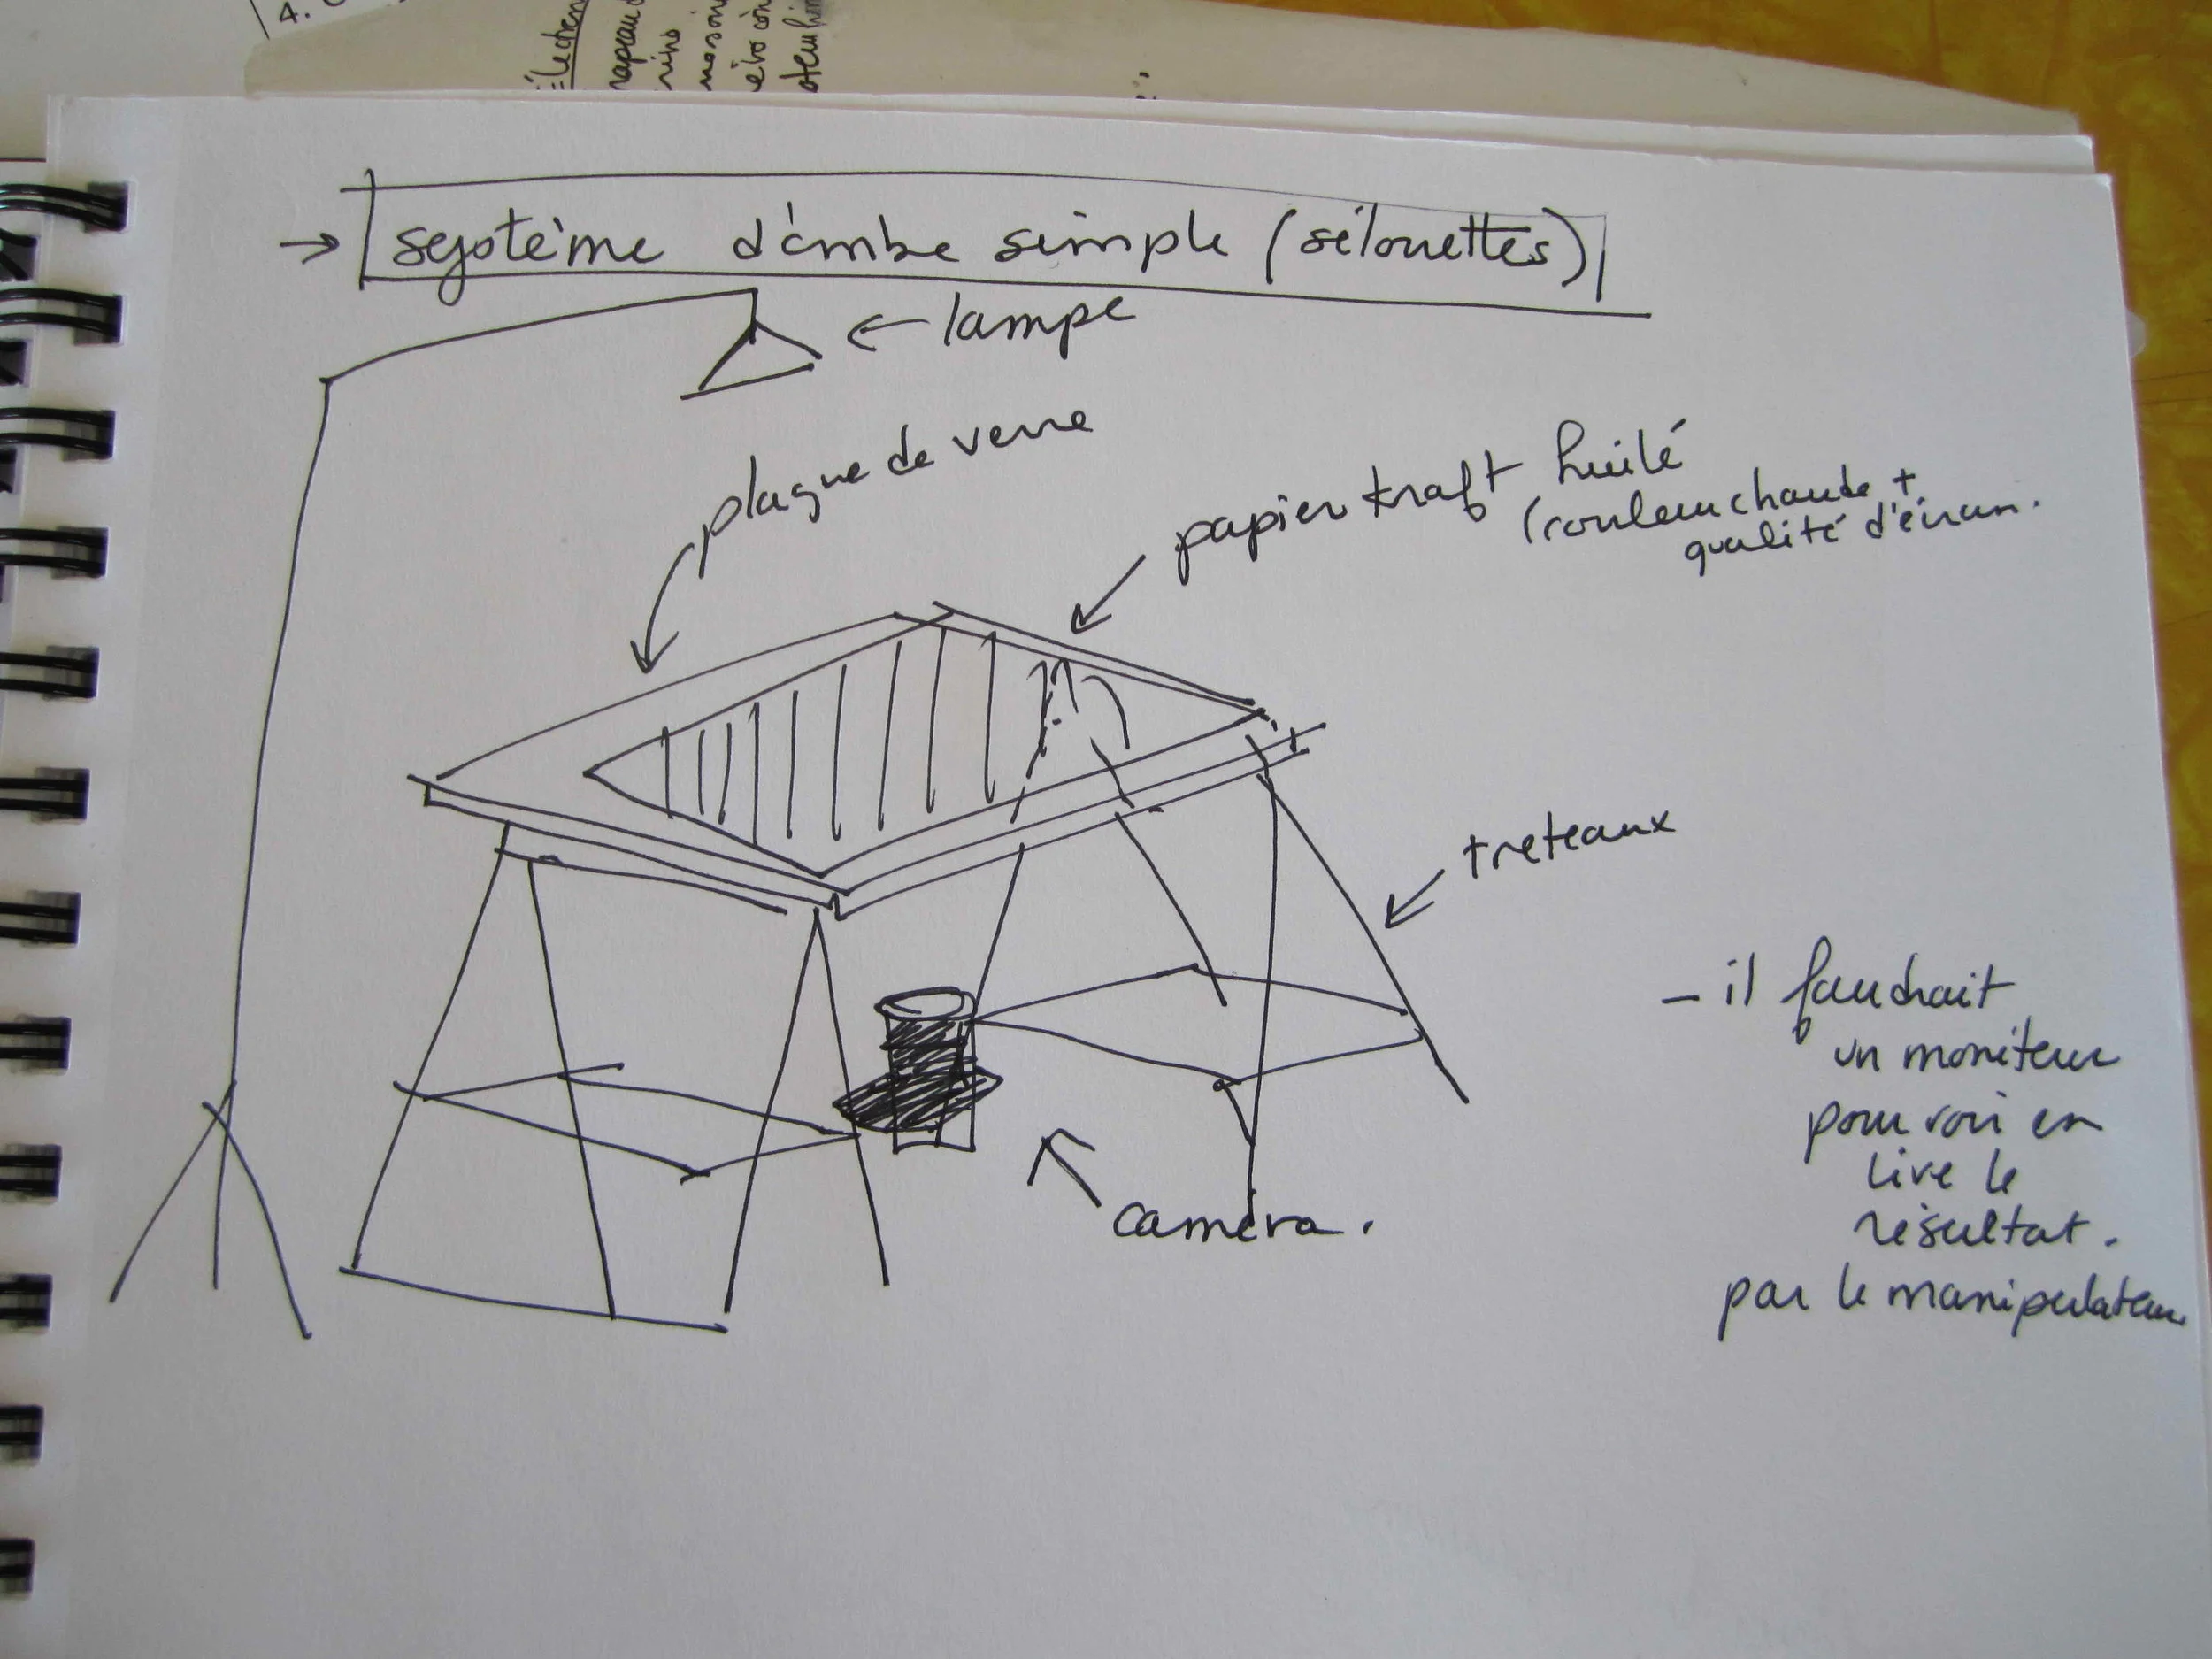 4.
→ système d'ombre simple (silouettes)
← lampe
plaque de verre
papier kraft huilé
(couleur chaude +
qualité d'écran.
treteaux
– il faudrait
un moniteur
pour voir en
live le
résultat.
par le manipulateur
caméra.